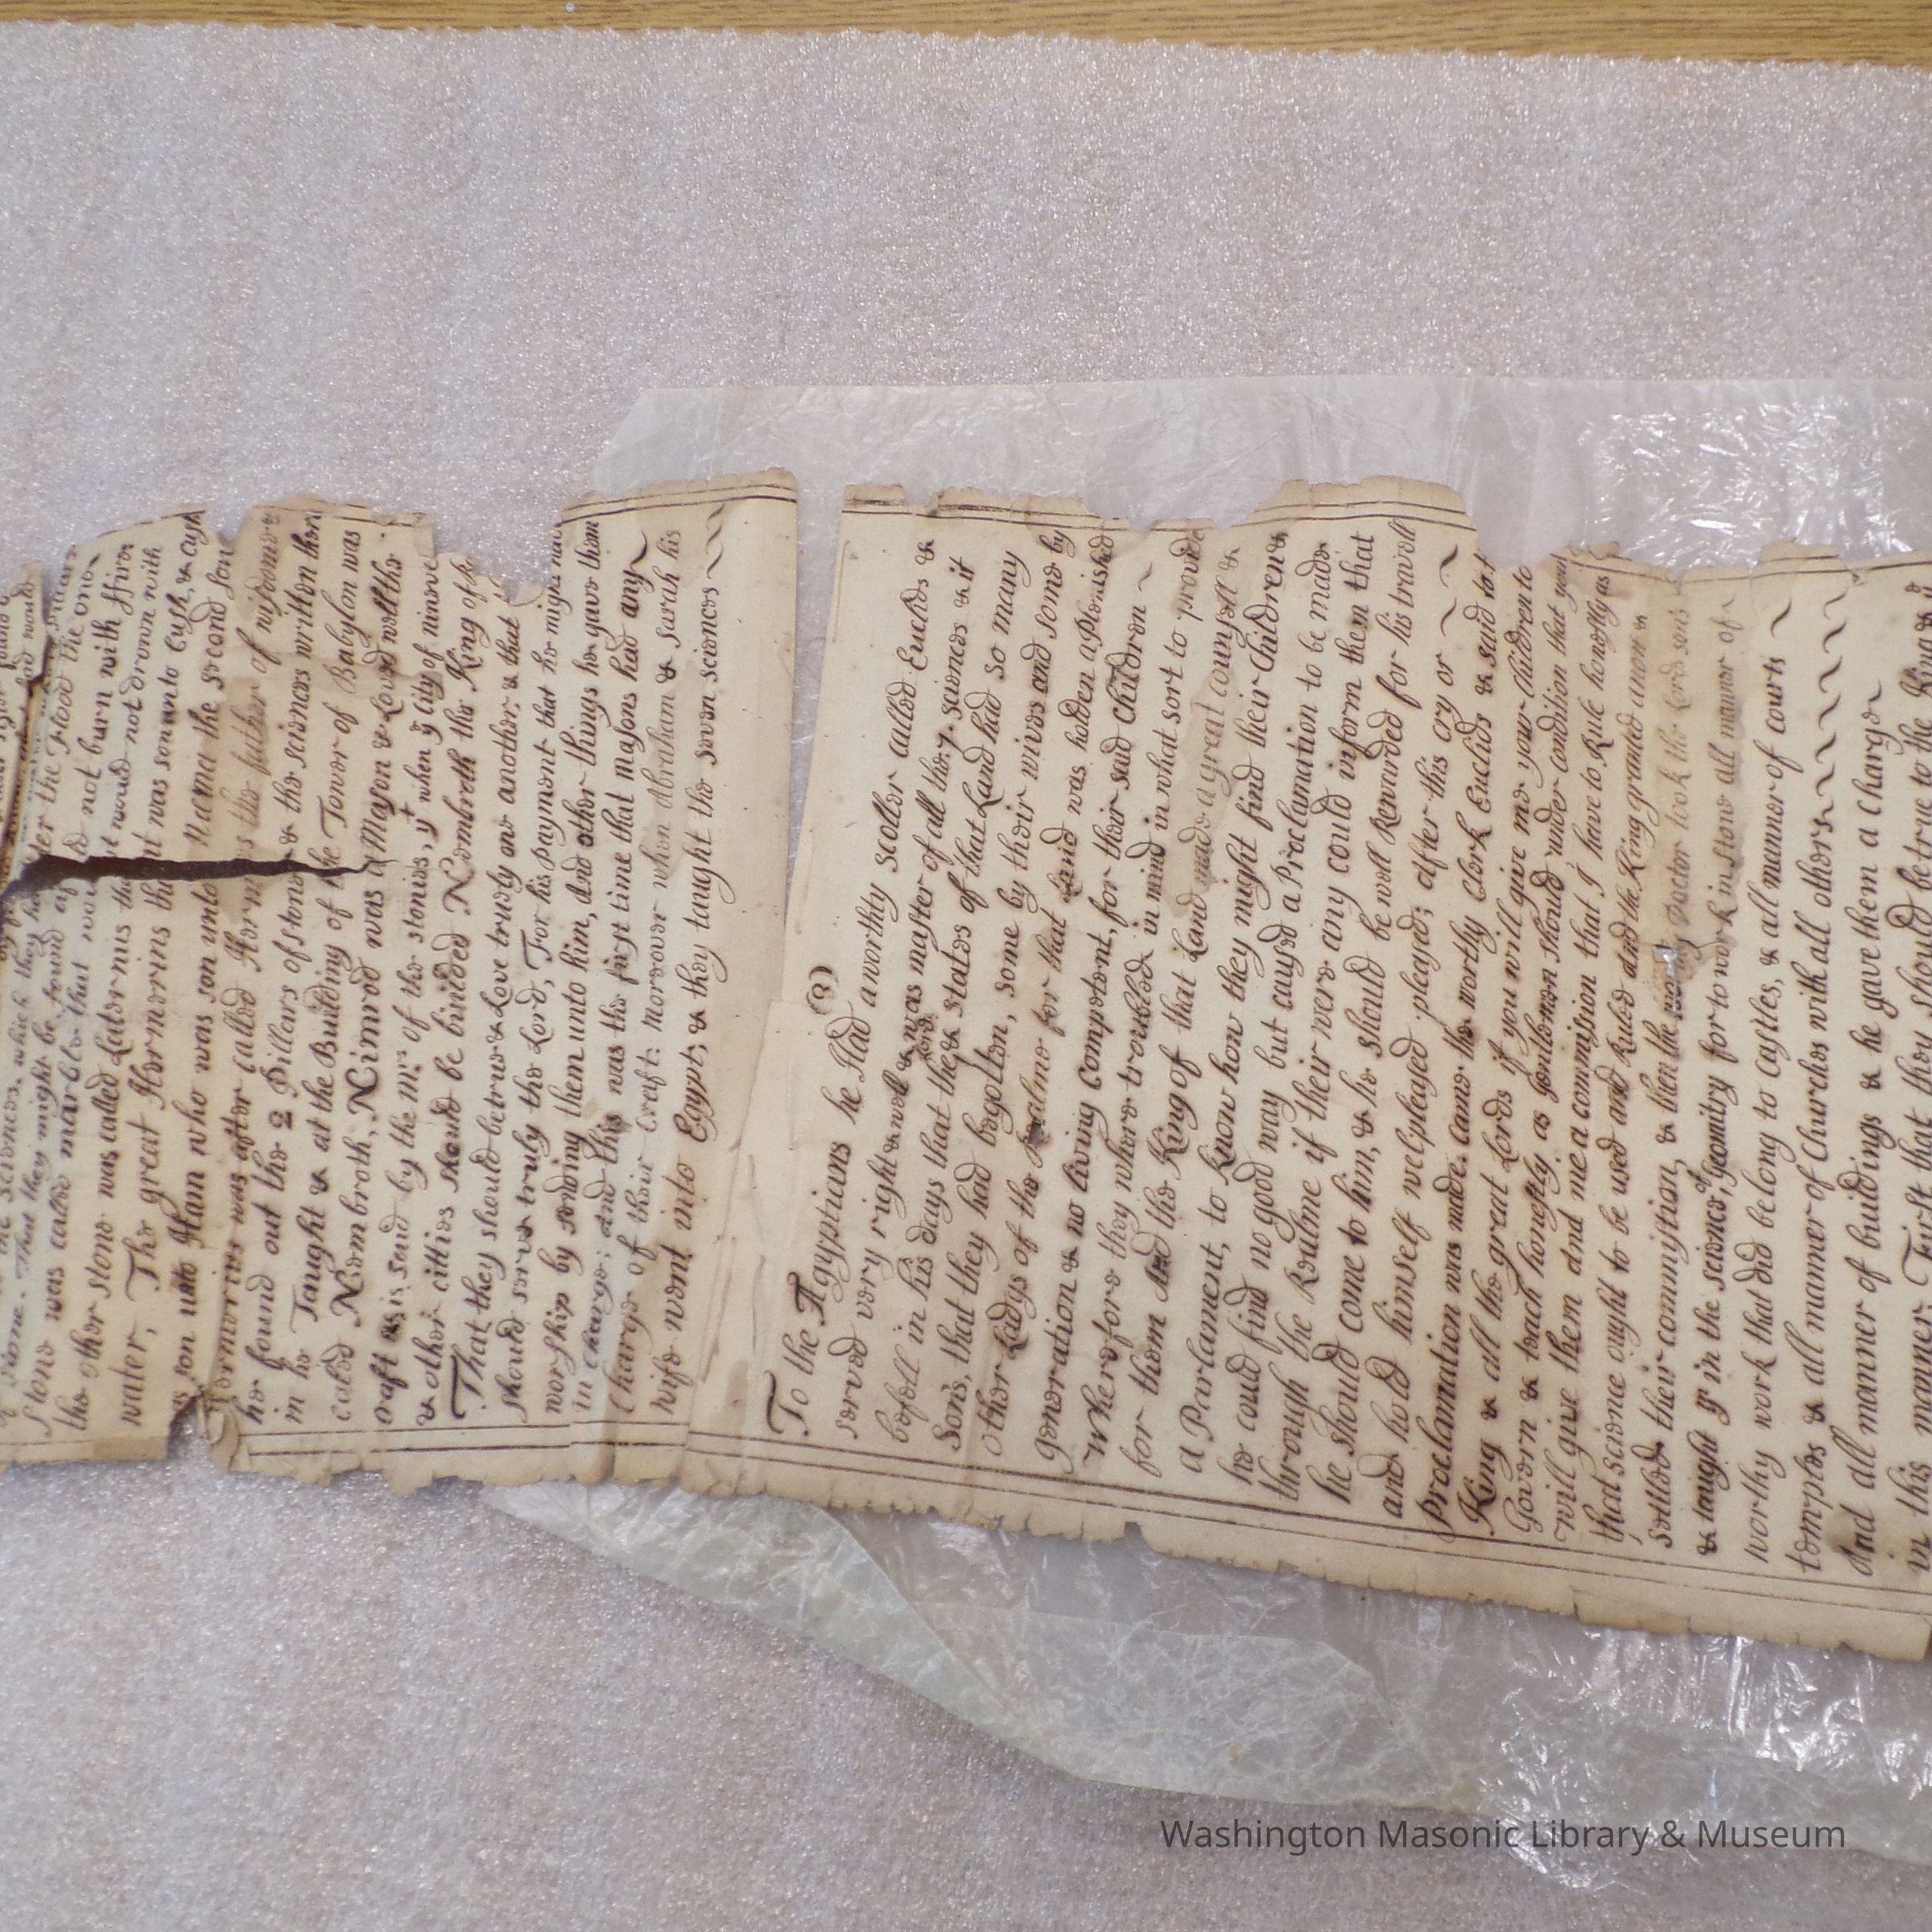 the sciences, which they
stone. That they might be found after the Flood the one
stone was called marble that would not burn with ffire
the other stone was called Laternis that it would not drown with
water, The great Hormorins that was son unto Cush, & Cush
was son unto Ham who was son unto Noema the second son
Hormorins was after called Hormes the father of wisdome
he found out the 2 Pillers of stone & the sciences written ther
in he Taught & at the Building of the Tower of Babylon was
called Nembroth, Nimrod was a Mason & Loved well the
craft as is said by the Mr: of the stonies, yt when ye City of nineve
& other citties should be builded Nembroth the King of
That they should be true & Love truly one another, & that
should serve truly the Lord, For his Payment that he might
worship by sending them unto him, And other things he gave them
in charge; and this was the first time that masons had any
charge of their Craft: moreover when Abraham & Sarah his
wife went into Egypt; & they taught the seven sciences
(3)
To the Ægyptians he Had a worthy scoller called Euclids &
served very right & well & was master of all the 7. sciences & it
befell in his days that the Lord & states of that Land had so many
Sons, that they had begotten, some by their wives and some by
other Ladys of the Realme for that Land was holden a Plenished
Generation & no living Competent, for their said Children
Wherefore they where troubled in mind in what sort to provide
for them And the King of that Land made a great counsell &
a Parlament, to know how they might find their Children &
he could find no good way but caused a Proclamation to be made
through the Realme if their were any could inform them that
he should come to him, & he should be well Rewarded for his travell
and hold himself welpleased pleased; After this cry or
Proclamation was made. Came the worthy Clerk Euclids & said to
King & all the great Lords if you will give me your Children to
Govern & teach honestly as Gentlemen should under condition that you
will give them And me a commission that I have to Rule honestly as
that science ought to be used and Ruled and the King granted anon &
Settled their commistian, & then the worthy Doctor took the Lord sons
& taught ym in the science, of Geomitry for to work in stone all manner of
worthy work that did belong to castles, & all manner of courts
temples & all manner of Churches with all others
And all manner of buildings & he gave them a charge
in this manner First that they should be true to the King &
Washington Masonic Library & Museum